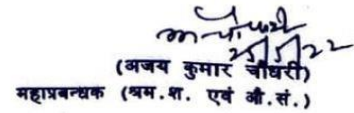 25/5/22
(अजय कुमार चौधरी)
महाप्रबन्धक (श्रम.श. एवं औ.सं.)